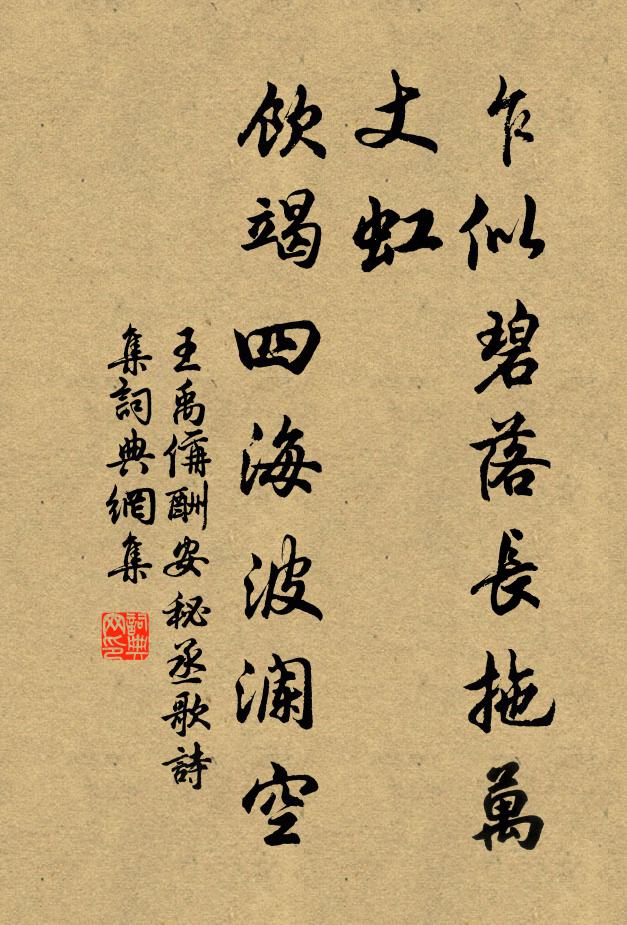 乍似碧落長拖萬
丈虹
飲竭四海波瀾空
王禹偁酬安秘丞歌詩
集詞典網集
詞典网印